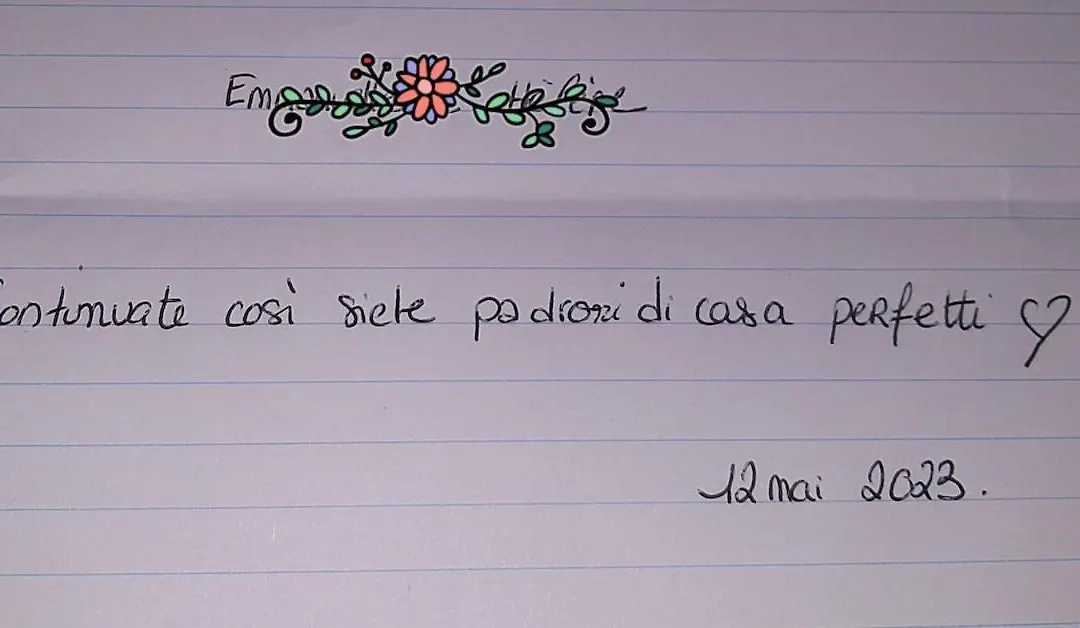 Continuate così siete padroni di casa perfetti ♡
12 mai 2023.